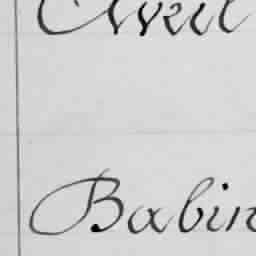 Avril
Babin